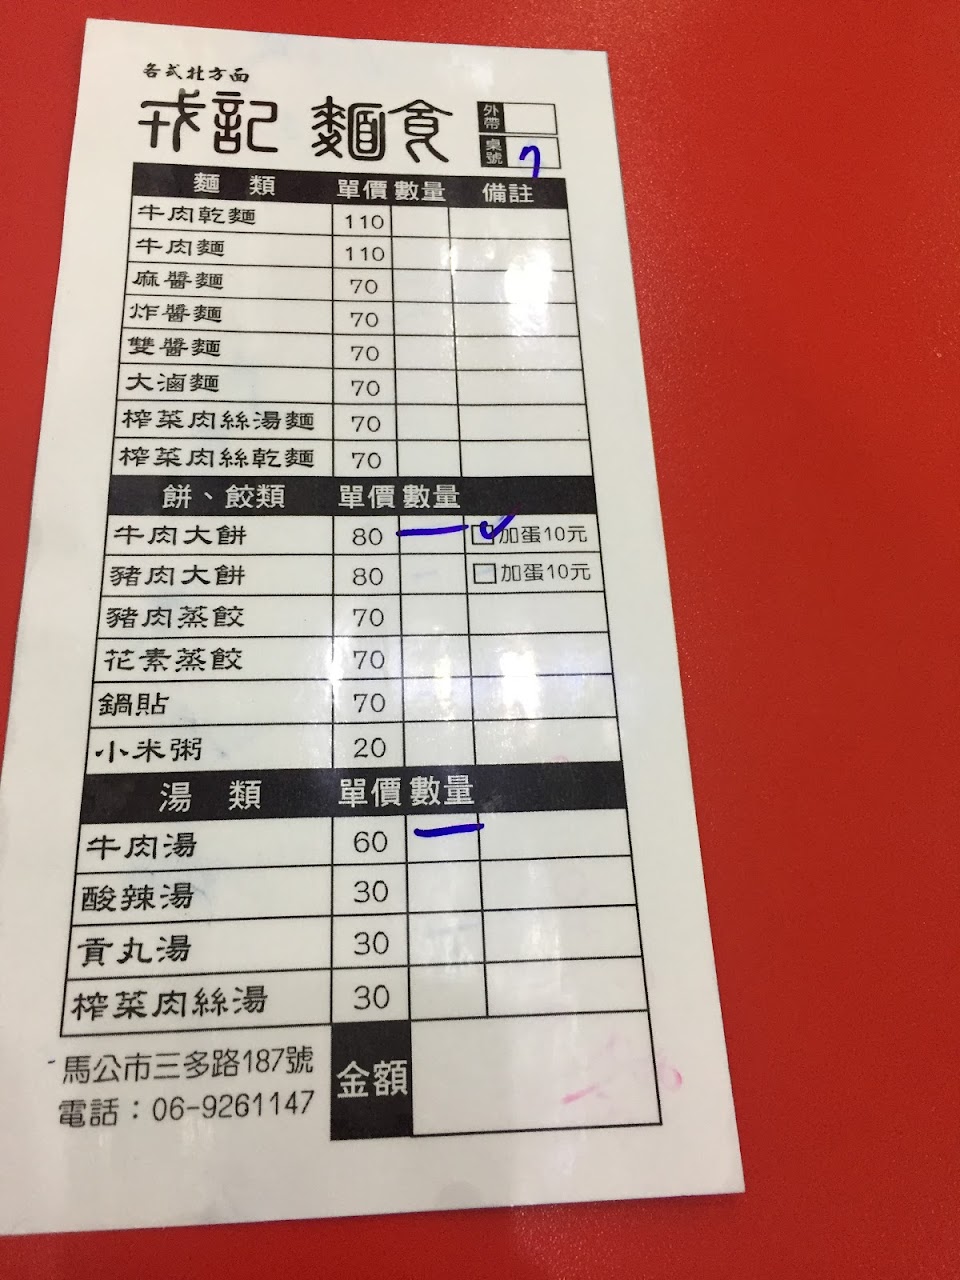 各式北方面
戎記 麵食
外帶
桌號 7
麵類 單價 數量 備註
牛肉乾麵 110
牛肉麵 110
麻醬麵 70
炸醬麵 70
雙醬麵 70
大滷麵 70
榨菜肉絲湯麵 70
榨菜肉絲乾麵 70
餅、餃類 單價 數量
牛肉大餅 80 一 ☑加蛋10元
豬肉大餅 80 □加蛋10元
豬肉蒸餃 70
花素蒸餃 70
鍋貼 70
小米粥 20
湯類 單價 數量
牛肉湯 60 一
酸辣湯 30
貢丸湯 30
榨菜肉絲湯 30
馬公市三多路187號
電話：06-9261147
金額